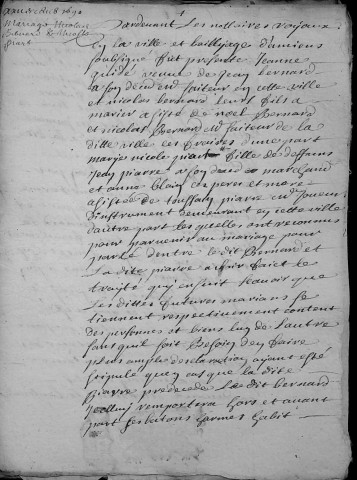 Mariage Nicolas
Bernard et Nicolle
piarre
Pardevant Les nottaires royaux
En la ville et bailliage d'amiens
soubsigné fut presente Jeanne
vefve de Jean bernard
a son decedz saiteur en cette ville
et nicolas bernard leur fils a
marier assisté de noel Bernard
et nicolas Bernard saiteur de la
ditte ville ses d'une part
marye nicole piarre fille de deffunt
Jean piarre a son decedz marchand
et anne ses pere et mere
assistée de toussain piarre Joueur
d'instrument demeurant en cette ville
d'autre part lesquelles ont reconnus
pour parvenir au mariage pour
parlé d'entre le dit Bernard et
La dite piarre avoir faict le
traité qui ensuit scavoir que
Les dittes futures marians se
tiennent respectivement content
des personnes et biens l'un de l'autre
sans qu'il soit Besoin d'en faire
plus ample declaration ayant esté
stipulé qu'en cas que la dite
piarre predecede Le dit bernard
Jcelluy remportera hors et avant
part ses habits